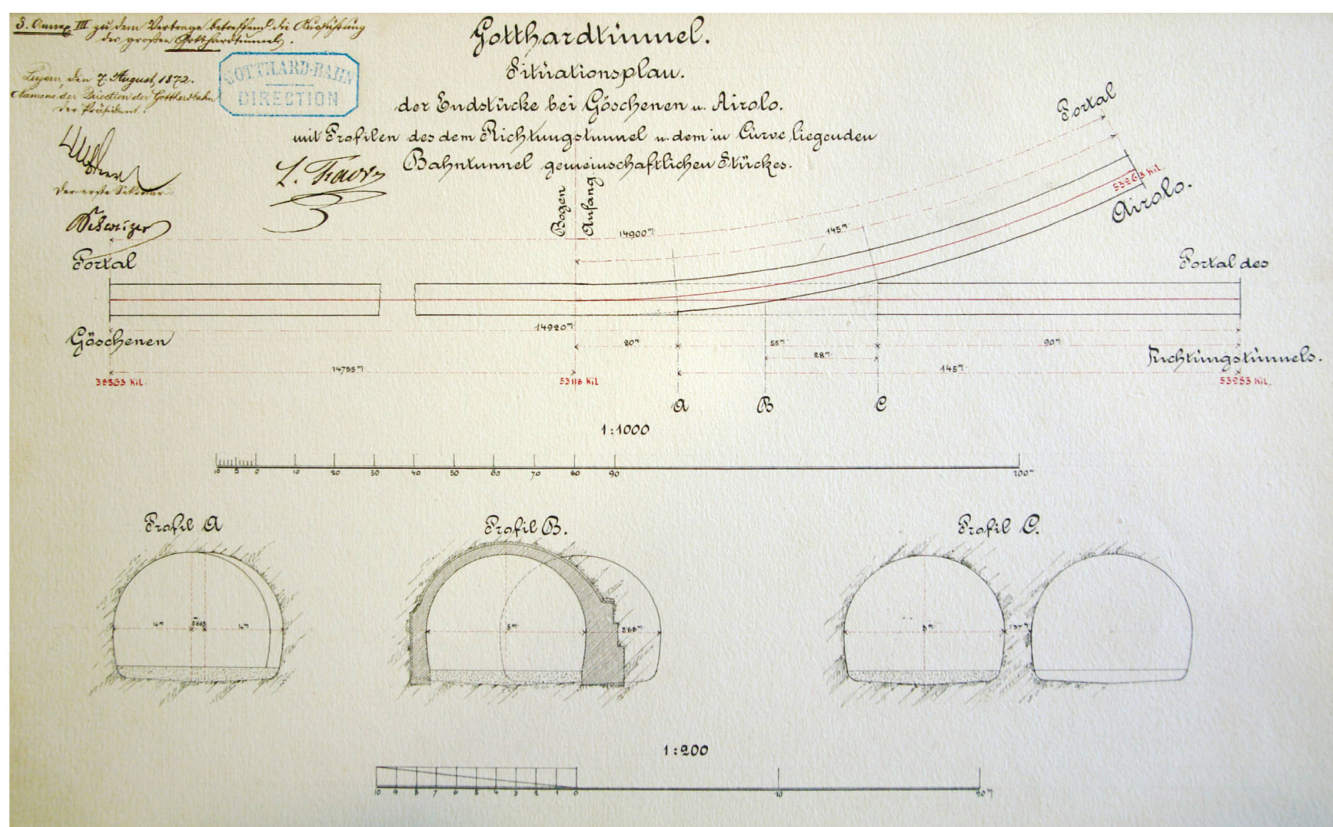 3. Annex III zu dem Vertrage betreffend die Ausführung
des grossen Gotthardtunnels.
Luzern, den 7. August, 1872.
Namens der Direction der Gotthardbahn
der Präsident:
der erste Sekretär
Schweizer
L. Favre
GOTTHARD-BAHN
DIRECTION
Gotthardtunnel.
Situationsplan.
der Endstücke bei Göschenen u. Airolo.
mit Profilen des dem Richtungstunnel u. dem in Curve liegenden
Bahntunnel gemeinschaftlichen Stückes.
Portal
Airolo.
Bogen
Anfang
14900m
145m
Portal
Göschenen
Portal des
Richtungstunnels.
14920m
20m
55m
90m
28m
14755m
145m
53118 Kil.
A
B
C
1:1000
10 5 0 10 20 30 40 50 60 70 80 90 200m
Profil A
Profil B.
Profil C.
4m
4m
8m
8m
1:200
10 9 8 7 6 5 4 3 2 1 0 10 20m